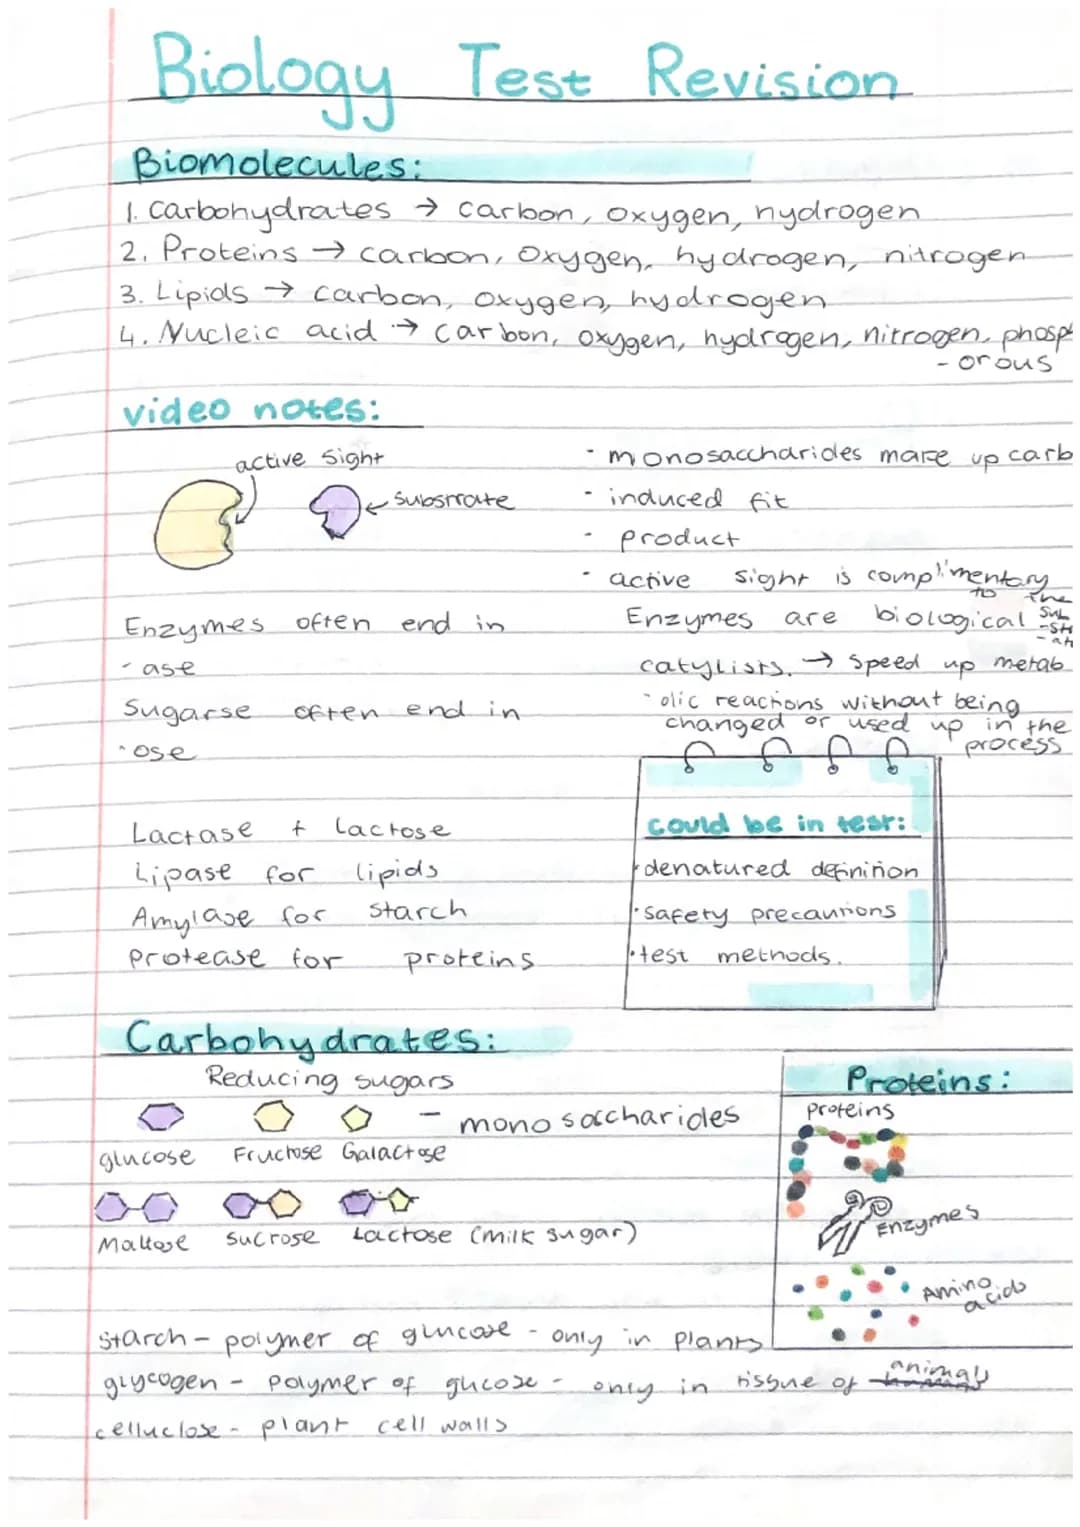 Biology Test Revision
Biomolecules:
1. Carbohydrates → carbon, oxygen, hydrogen
2. Proteins → carbon, oxygen, hydrogen, nitrogen
3. Lipids → carbon, oxygen, hydrogen
4. Nucleic acid → carbon, oxygen, hydrogen, nitrogen, phosph
- orous
video notes:
active Sight
substrate
Enzymes often end in
- ase
Sugarse often end in
- ose
Lactase + lactose
Lipase for lipids
Amylase for starch
Protease for proteins
- monosaccharides make up carb
- induced fit
- product
- active sight is complimentary
to the
sub
-str
-at
Enzymes are biological
catylists. → speed up metab
- olic reactions without being
changed or used up in the
process
could be in test:
· denatured definition
· safety precautions
· test methods.
Carbohydrates:
Reducing sugars
- monosaccharides
glucose Fructose Galactose
Maltose sucrose Lactose (milk sugar)
Proteins:
Proteins
Enzymes
Amino
acids
Starch - polymer of glucose - only in plants
glycogen - polymer of glucose - only in tissue of animals
celluclose - plant cell walls